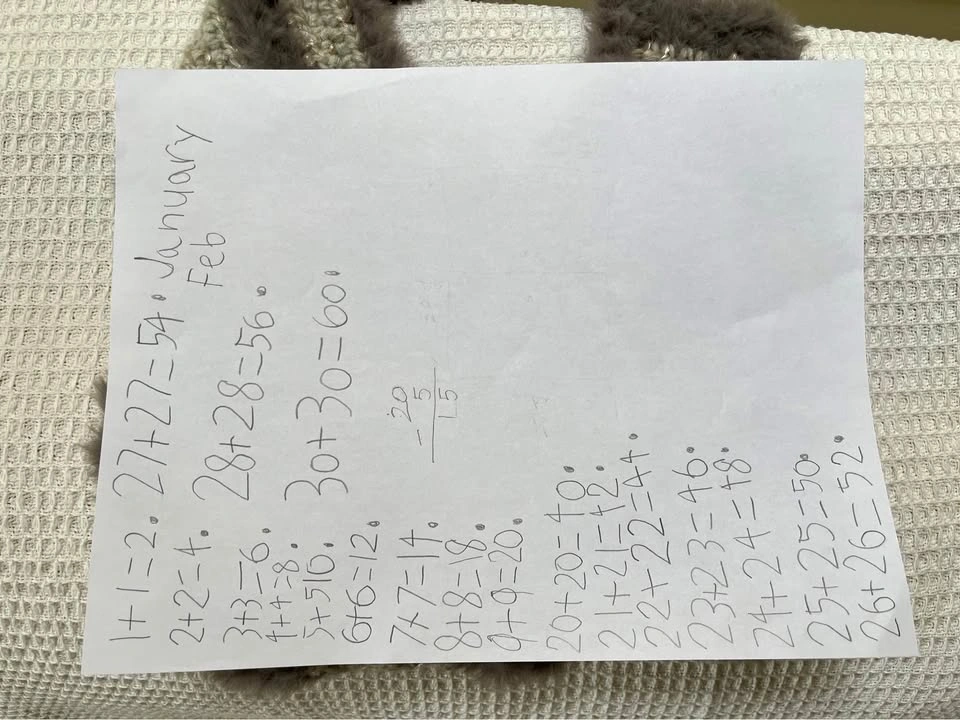 1+1=2.
2+2=4.
3+3=6.
4+4=8.
5+510.
6+6=12.
7+7=14.
8+8=18.
9+9=20.
20+20=40.
21+21=42.
22+22=44.
23+23=46.
24+24=48.
25+25=50.
26+26=52.
27+27=54. January
Feb
28+28=56.
30+30=60.
- 20
5
15